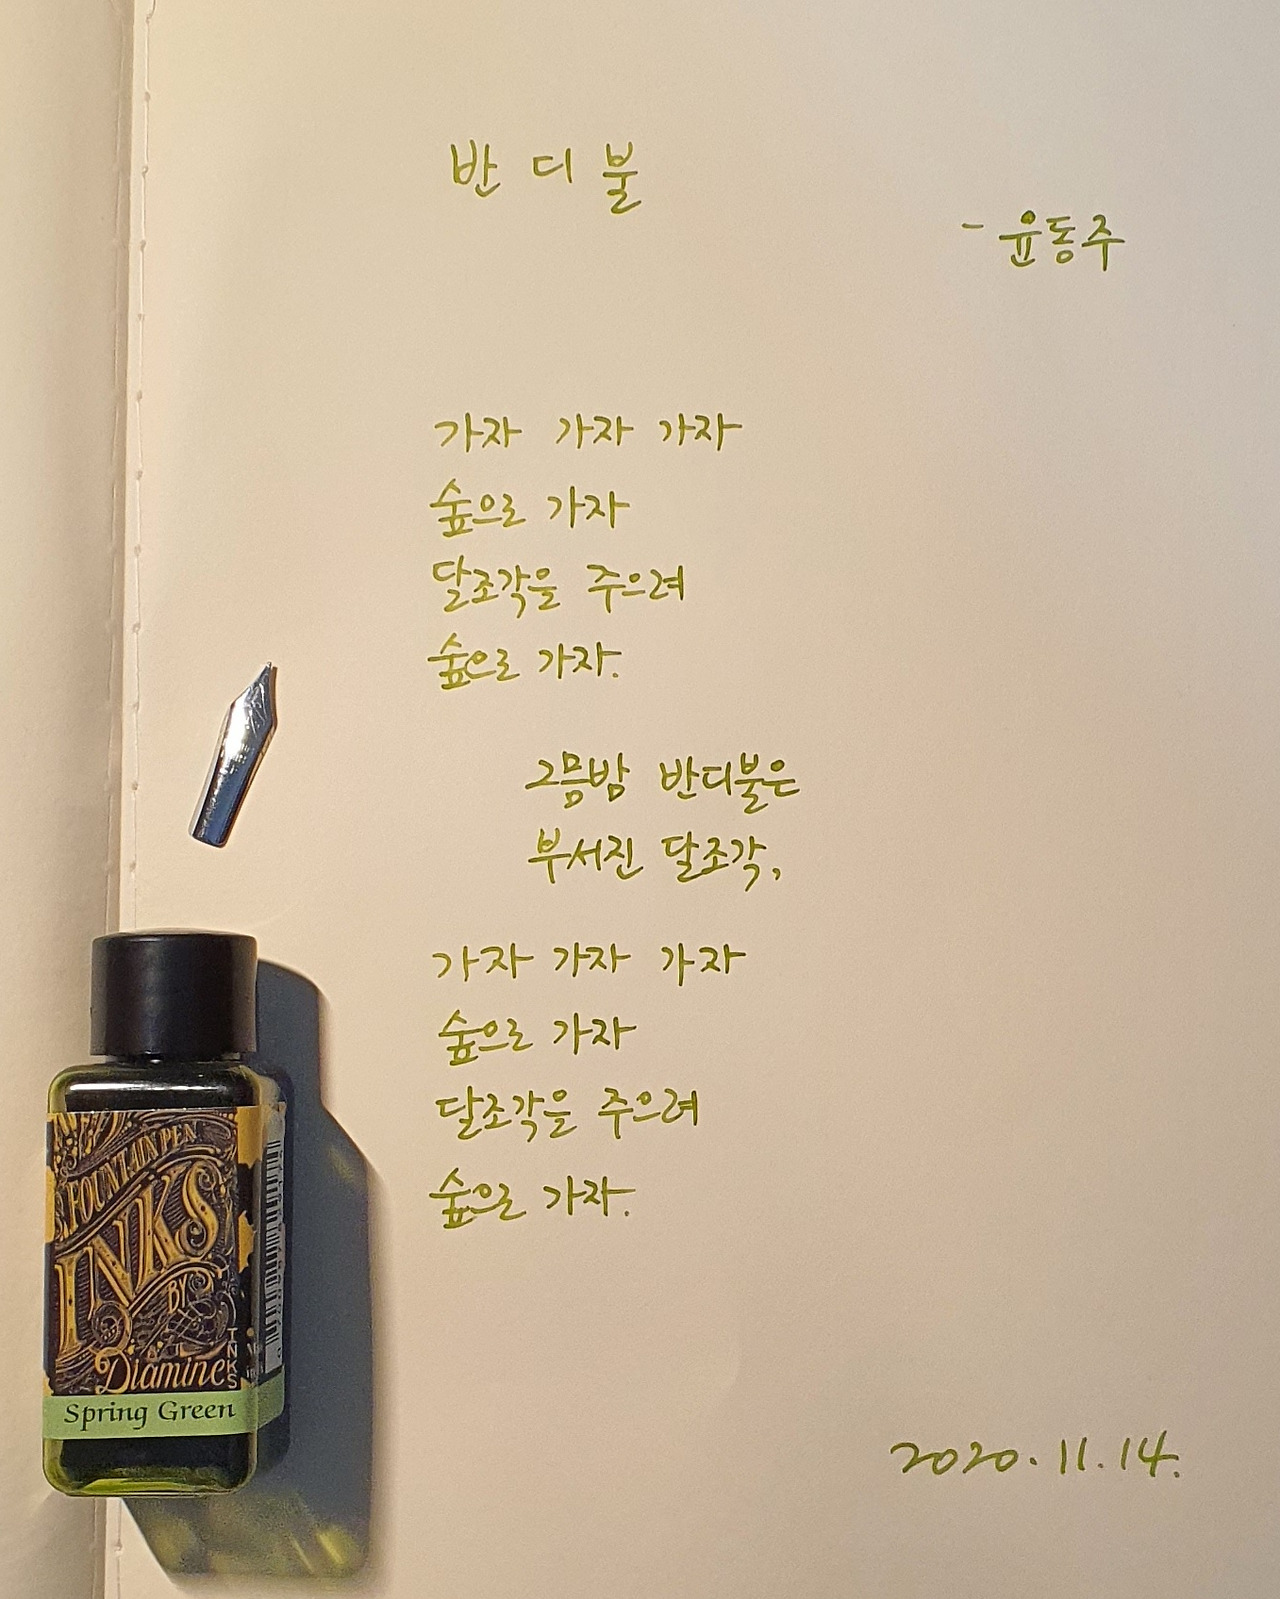 반디불
- 윤동주
가자 가자 가자
숲으로 가자
달조각을 주으려
숲으로 가자.
그믐밤 반디불은
부서진 달조각,
가자 가자 가자
숲으로 가자
달조각을 주으려
숲으로 가자.
2020.11.14.
FOUNTAIN PEN
INKS
BY
Diamine
INKS
Spring Green